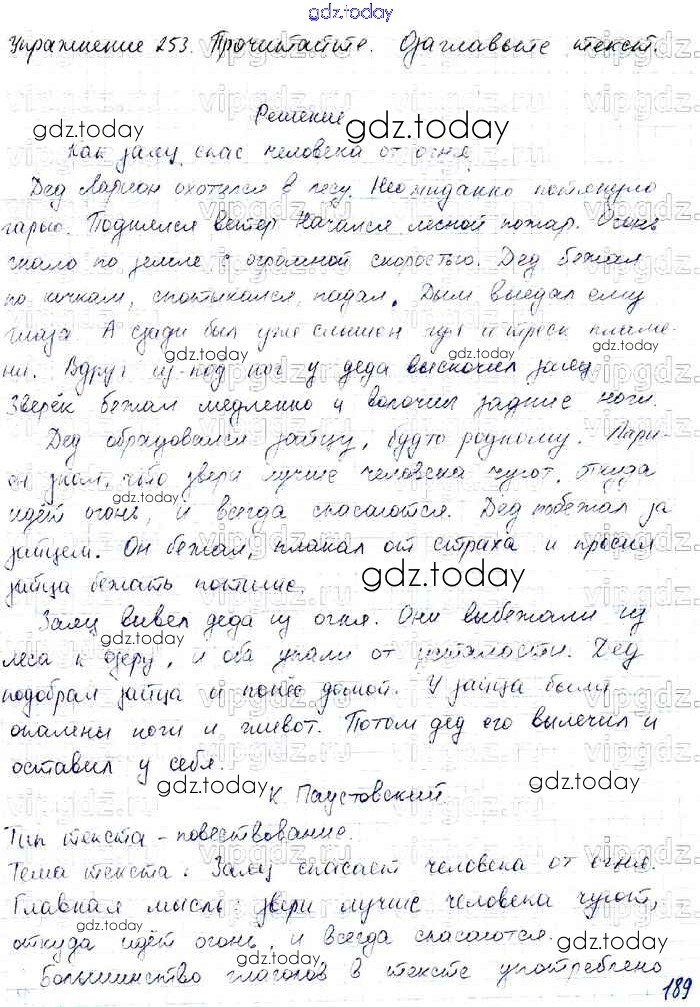 gdz.today
Упражнение 253. Прочитайте. Озаглавьте текст.
Решение
Как заяц спас человека от огня.
Дед Ларион охотился в лесу. Неожиданно потянуло
гарью. Поднялся ветер. Начался лесной пожар. Огонь
гнало по земле с огромной скоростью. Дед бежал
по кочкам, спотыкался, падал. Дым выедал ему
глаза. А сзади был уже слышен гул и треск пламе-
ни. Вдруг из-под ног у деда выскочил заяц.
Зверёк бежал медленно и волочил задние ноги.
Дед обрадовался зайцу, будто родному. Лари-
он знал, что звери лучше человека чуют, откуда
идёт огонь, и всегда спасаются. Дед побежал за
зайцем. Он бежал, плакал от страха и просил
зайца бежать потише.
Заяц вывел деда из огня. Они выбежали из
леса к озеру, и оба упали от усталости. Дед
подобрал зайца и понёс домой. У зайца были
опалены ноги и живот. Потом дед его вылечил и
оставил у себя.
К. Паустовский
Тип текста - повествование.
Тема текста: Заяц спасает человека от огня.
Главная мысль: звери лучше человека чуют,
откуда идёт огонь, и всегда спасаются.
Большинство глаголов в тексте употреблено
189